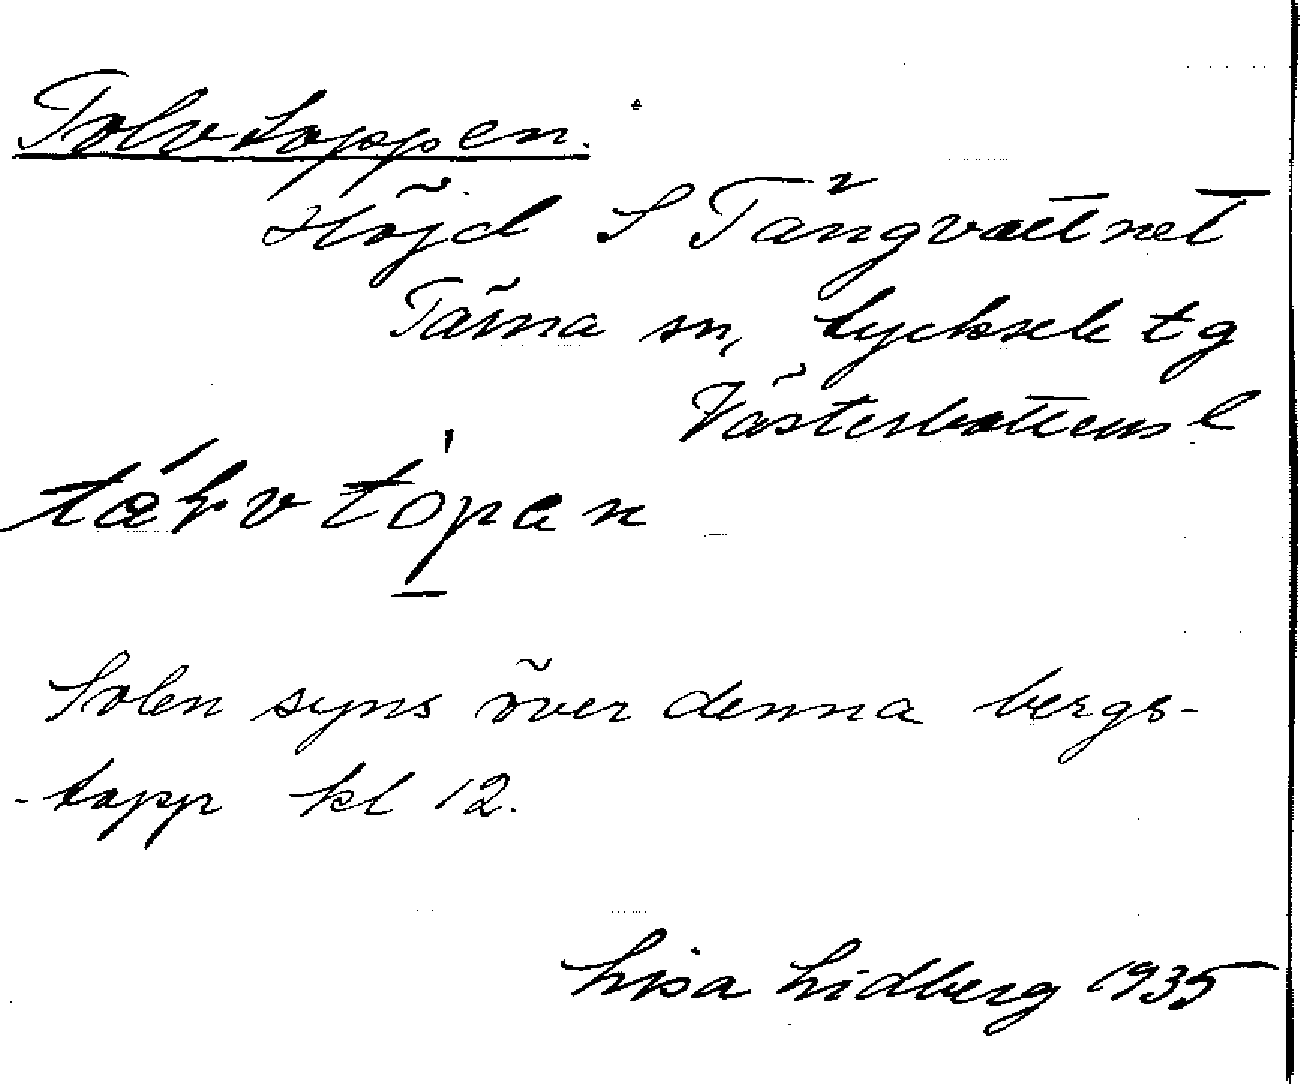 Tolvtoppen.
Höjd S Tängvattnet
Tärna sn, Lycksele tg
Västerbottens l
Solen syns över denna bergs-
-topp kl 12.
Lisa Lidberg 1935